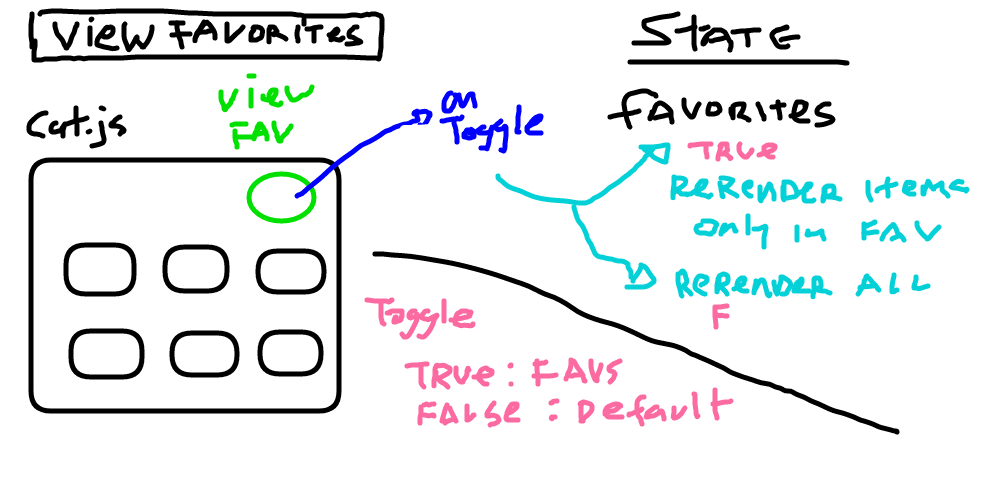 VIEW FAVORITES
Cat.js
View
FAV
on
Toggle
STATE
FAVORITES
TRUE
RERENDER ITEMS
only in FAV
RERENDER ALL
F
Toggle
TRUE: FAVS
FALSE: Default